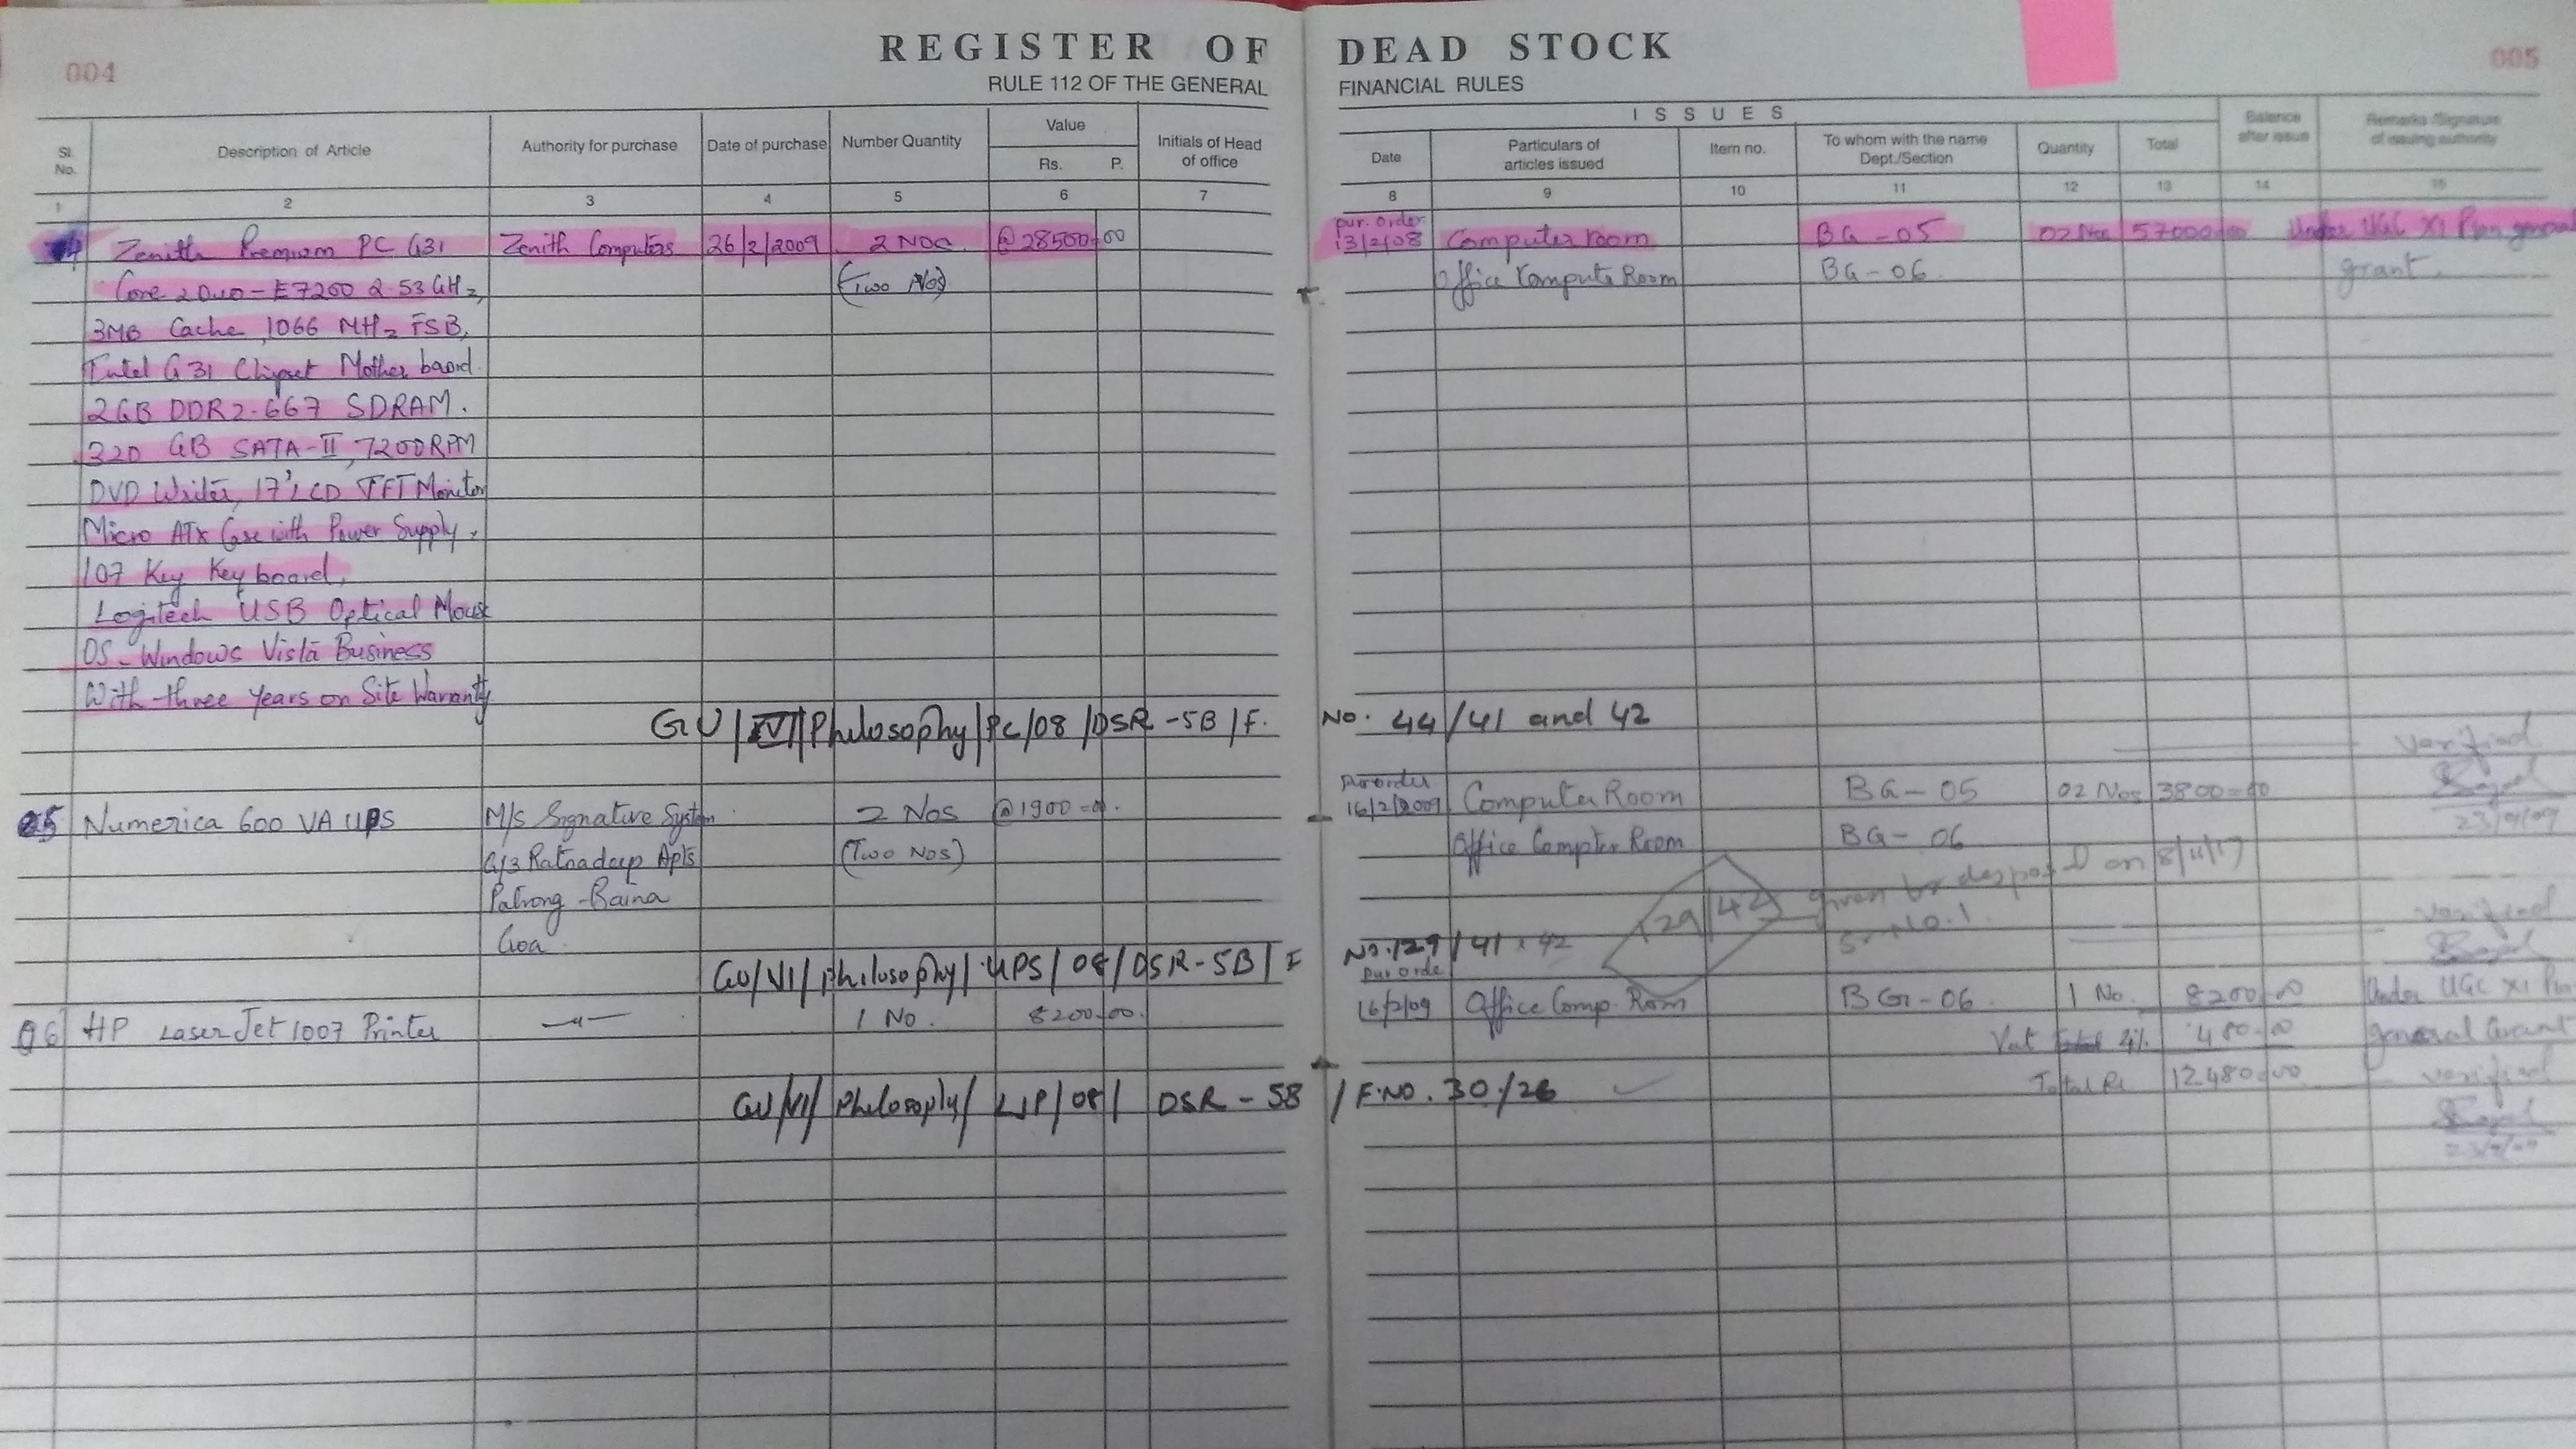 004
REGISTER OF DEAD STOCK
005
RULE 112 OF THE GENERAL FINANCIAL RULES
Sl. No.
Description of Article
Authority for purchase
Date of purchase
Number Quantity
Value
Rs. P.
Initials of Head of office
ISSUES
Date
Particulars of articles issued
Item no.
To whom with the name Dept./Section
Quantity
Total
Balance after issue
Remarks /Signature of issuing authority
1 2 3 4 5 6 7 8 9 10 11 12 13 14 15
Zenith Premium PC G31 Zenith Computers 26/2/2009 2 Nos @28500=00 pur. order 13/2/08 Computer room BG-05 02 Nos 57000=00 Under UGC XI Plan general
Core 2Duo-E7200 2.53GHz, (Two Nos) Office Compute Room BG-06 grant
3MB Cache, 1066 MHz FSB,
Intel G31 Chipset Mother board
2GB DDR2-667 SDRAM.
320 GB SATA-II, 7200RPM
DVD Writer, 17" LCD TFT Monitor
Micro ATX Case with Power Supply,
107 Key Key board,
Logitech USB Optical Mouse
OS-Windows Vista Business
With three years on Site Warranty
GU/VI/Philosophy/PC/08/DSR-5B/F. No. 44/41 and 42
verified
05 Numerica 600 VA UPS M/s Signative System 2 Nos @1900=0. Pur order 16/2/2009 Computer Room BG-05 02 Nos 3800=00
G/3 Ratnadeep Apts (Two Nos) Office Compter Room BG-06
Patrong-Baina
Goa
129/42 given to desposal on 8/11/17
Sr No.1
verified
GU/VI/Philosophy/UPS/08/DSR-5B/F No.129/41 & 42
06 HP LaserJet 1007 Printer —"— 1 No. 8200=00. pur orde 16/2/09 Office Comp. Room BG-06. 1 No. 8200=00 Under UGC XI Plan
Vat 4% 480=00 general Grant
Total Rs 12480=00 verified
GU/VI/Philosophy/LJP/08/ DSR-5B /F.NO. 30/26